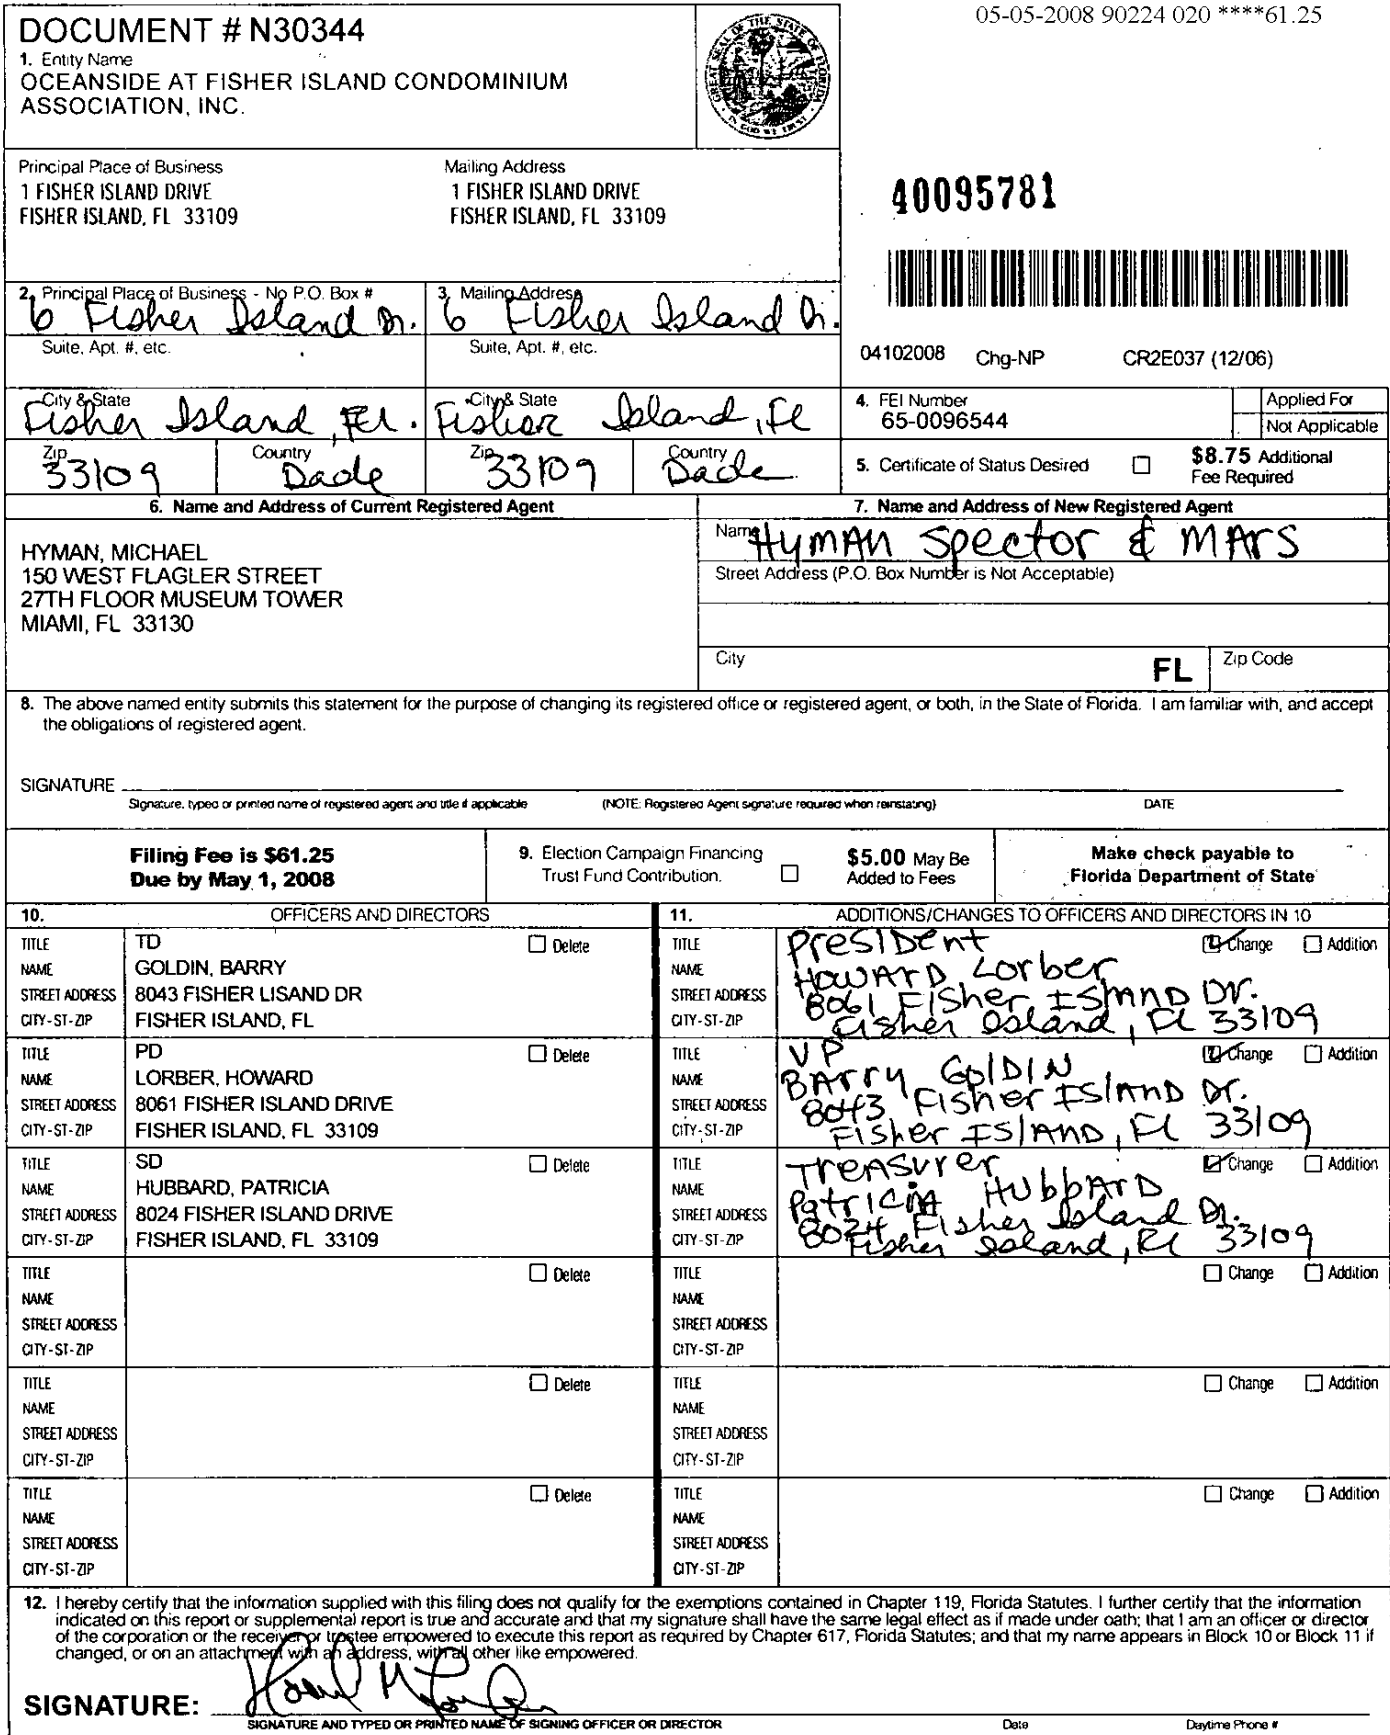 05-05-2008 90224 020 ****61.25
DOCUMENT # N30344
1. Entity Name
OCEANSIDE AT FISHER ISLAND CONDOMINIUM
ASSOCIATION, INC.
GREAT SEAL OF THE STATE OF FLORIDA
IN GOD WE TRUST
Principal Place of Business
1 FISHER ISLAND DRIVE
FISHER ISLAND, FL 33109
Mailing Address
1 FISHER ISLAND DRIVE
FISHER ISLAND, FL 33109
40095781
2. Principal Place of Business - No P.O. Box #
6 Fisher Island Dr.
3. Mailing Address
6 Fisher Island Dr.
Suite, Apt. #, etc.
Suite, Apt. #, etc.
04102008 Chg-NP CR2E037 (12/06)
City & State
Fisher Island, Fl.
City & State
Fisher Island, Fl
4. FEI Number
65-0096544
Applied For
Not Applicable
Zip
33109
Country
Dade
Zip
33109
Country
Dade
5. Certificate of Status Desired
$8.75 Additional
Fee Required
6. Name and Address of Current Registered Agent
HYMAN, MICHAEL
150 WEST FLAGLER STREET
27TH FLOOR MUSEUM TOWER
MIAMI, FL 33130
7. Name and Address of New Registered Agent
Name
Hyman Spector & MARS
Street Address (P.O. Box Number is Not Acceptable)
City FL Zip Code
8. The above named entity submits this statement for the purpose of changing its registered office or registered agent, or both, in the State of Florida. I am familiar with, and accept
the obligations of registered agent.
SIGNATURE
Signature, typed or printed name of registered agent and title if applicable (NOTE: Registered Agent signature required when reinstating) DATE
Filing Fee is $61.25
Due by May 1, 2008
9. Election Campaign Financing
Trust Fund Contribution.
$5.00 May Be
Added to Fees
Make check payable to
Florida Department of State
10. OFFICERS AND DIRECTORS
11. ADDITIONS/CHANGES TO OFFICERS AND DIRECTORS IN 10
TITLE TD Delete
NAME GOLDIN, BARRY
STREET ADDRESS 8043 FISHER LISAND DR
CITY-ST-ZIP FISHER ISLAND, FL
TITLE President Change Addition
NAME HOWARD Lorber
STREET ADDRESS 8061 Fisher ISLAND Dr.
CITY-ST-ZIP Fisher Island, Fl 33109
TITLE PD Delete
NAME LORBER, HOWARD
STREET ADDRESS 8061 FISHER ISLAND DRIVE
CITY-ST-ZIP FISHER ISLAND, FL 33109
TITLE VP Change Addition
NAME BARRY GolDIN
STREET ADDRESS 8043 Fisher ISlAnD Dr.
CITY-ST-ZIP Fisher ISlAND, Fl 33109
TITLE SD Delete
NAME HUBBARD, PATRICIA
STREET ADDRESS 8024 FISHER ISLAND DRIVE
CITY-ST-ZIP FISHER ISLAND, FL 33109
TITLE Treasurer Change Addition
NAME Patricia HUbbARD
STREET ADDRESS 8024 Fisher Island Dr.
CITY-ST-ZIP Fisher Island, Fl 33109
TITLE Delete
NAME
STREET ADDRESS
CITY-ST-ZIP
TITLE Change Addition
NAME
STREET ADDRESS
CITY-ST-ZIP
TITLE Delete
NAME
STREET ADDRESS
CITY-ST-ZIP
TITLE Change Addition
NAME
STREET ADDRESS
CITY-ST-ZIP
TITLE Delete
NAME
STREET ADDRESS
CITY-ST-ZIP
TITLE Change Addition
NAME
STREET ADDRESS
CITY-ST-ZIP
12. I hereby certify that the information supplied with this filing does not qualify for the exemptions contained in Chapter 119, Florida Statutes. I further certify that the information
indicated on this report or supplemental report is true and accurate and that my signature shall have the same legal effect as if made under oath; that I am an officer or director
of the corporation or the receiver or trustee empowered to execute this report as required by Chapter 617, Florida Statutes; and that my name appears in Block 10 or Block 11 if
changed, or on an attachment with an address, with all other like empowered.
SIGNATURE:
SIGNATURE AND TYPED OR PRINTED NAME OF SIGNING OFFICER OR DIRECTOR Date Daytime Phone #